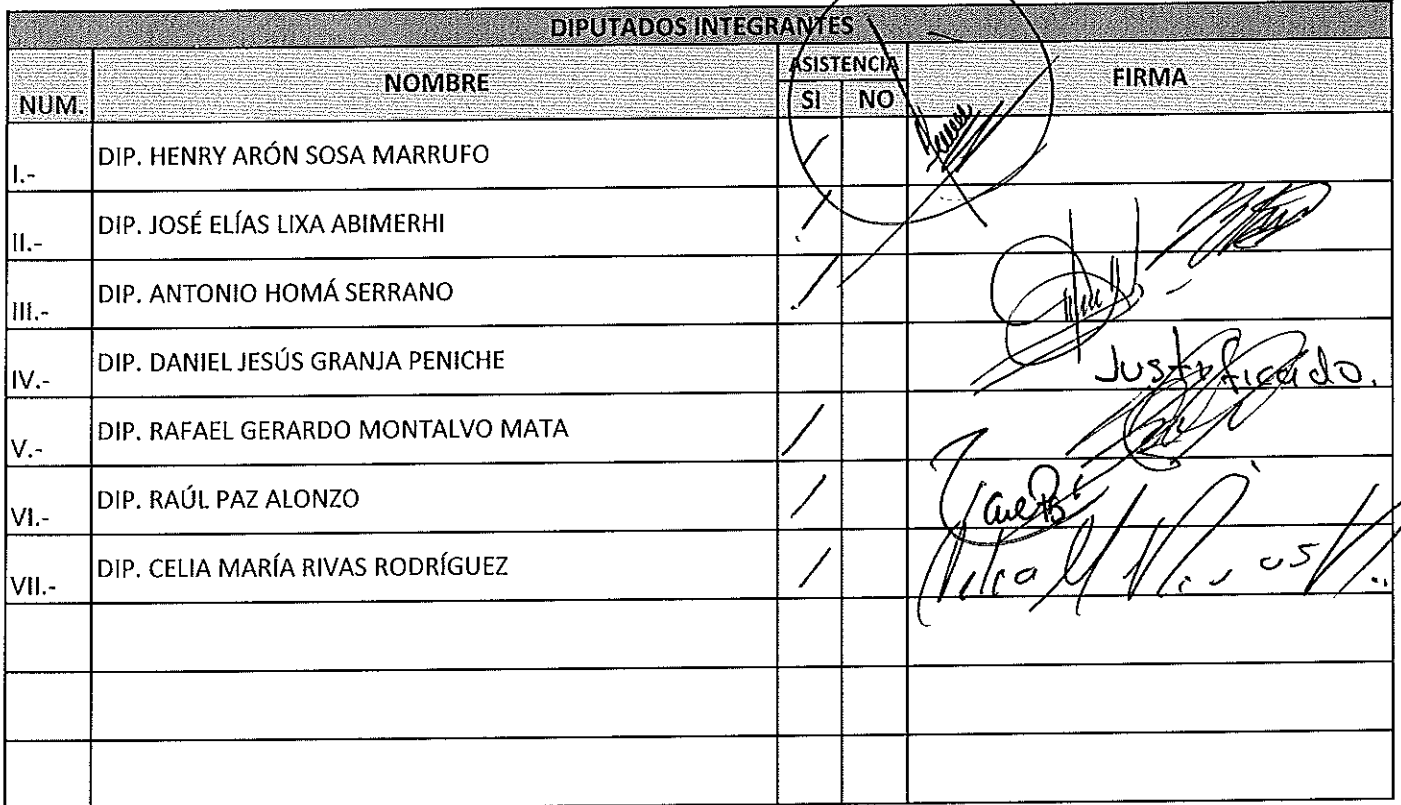 DIPUTADOS INTEGRANTES
NUM. NOMBRE ASISTENCIA FIRMA
SI NO
I.- DIP. HENRY ARÓN SOSA MARRUFO /
II.- DIP. JOSÉ ELÍAS LIXA ABIMERHI /
III.- DIP. ANTONIO HOMÁ SERRANO /
IV.- DIP. DANIEL JESÚS GRANJA PENICHE Justificado.
V.- DIP. RAFAEL GERARDO MONTALVO MATA /
VI.- DIP. RAÚL PAZ ALONZO /
VII.- DIP. CELIA MARÍA RIVAS RODRÍGUEZ /